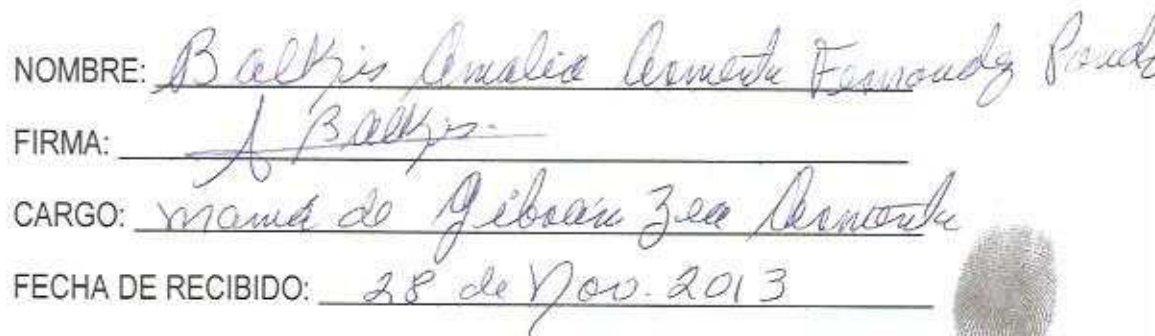 NOMBRE: Balkjis Amalia Armenta Fernandz
FIRMA: A Balkjis.
CARGO: mamá de Gibrán Zea Armenta
FECHA DE RECIBIDO: 28 de Nov. 2013